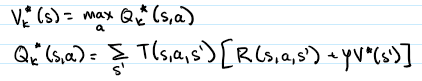 V_k^*(s) = max_a Q_k^*(s,a)
Q_k^*(s,a) = Σ_{s'} T(s,a,s') [R(s,a,s') + γV^*(s')]